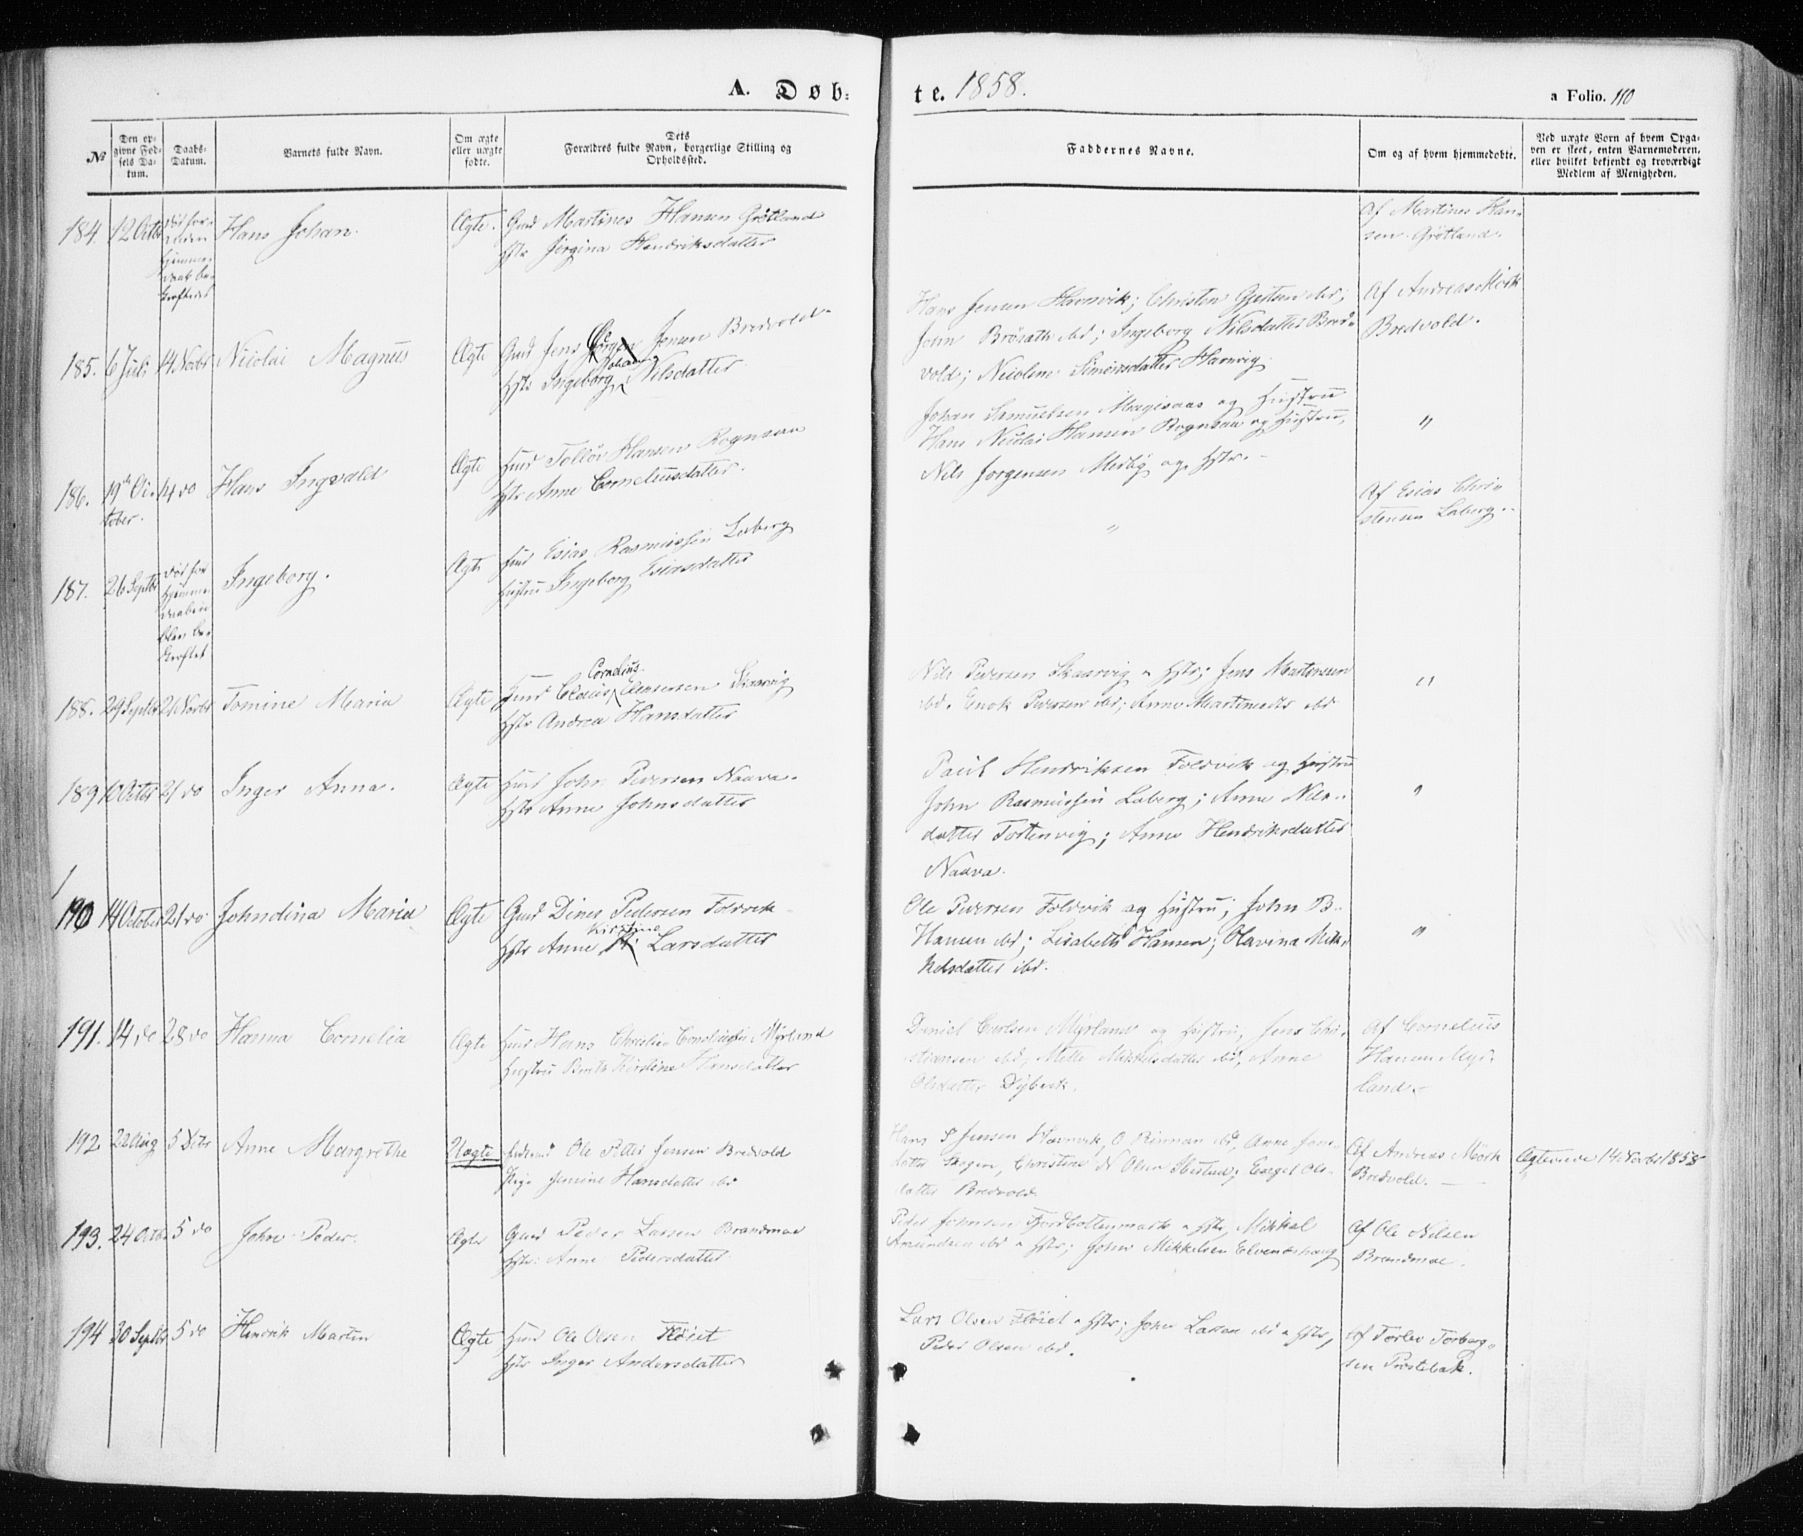 A. Døbte. 1858.
a Folio. 110
№
Den opgivne Fødsels Datum.
Daabs-Datum.
Barnets fulde Navn.
Om ægte eller uægte fødte.
Dets Forældres fulde Navn, borgerlige Stilling og Opholdssted.
Faddernes Navne.
Om og af hvem hjemmedøbte.
Ved uægte Børn af hvem Opgaven er skeet, enten Barnemoderen, eller hvilket bekjendt og troværdigt Medlem af Menigheden.
184. 12 Octbr
Hans Johan.
Ægte.
Gmd Martines Hansen Grøtland
Hstr Jørgina Hendriksdatter
Af Martines Han-
sen Grøtland.
185. 6 Juli 14 Novbr Nicolai Magnus
Ægte
Gmd Jens Jonsen Bredvold.
Hstr Ingeborg Johan Nilsdatter
Hans Jensen Havnvik; Christen ibd;
John ibd; Ingeborg Nilsdatter Bred-
vold; Nicoline Simonsdatter Havnvig.
Af Andreas Mørk
Bredvold.
186. 19de Oc- 14 do
tober.
Hans Ingvald
Ægte
Huusd Tollev Hansen Rognsaa
Hstr Anne Corneliusdatter.
Johan Samuelsen og Hustru
Hans Nicolai Hansen Rognsaa og Hustru,
Nils Jørgensen Mosby og Hstr.
"
187. 26 Septbr
døde før
Hjemme-
daaben
blev be-
kræftet
Ingeborg.
Ægte
Huusd Esias Rasmussen Laberg
Hustru Ingeborg Esiasdatter
"
Af Esias Chri-
stensen Laberg.
188. 29 Septbr 21 Novbr Tomine Maria
Ægte
Huusd Claus Cornelius Skaarvig
Hstr Andrea Hansdatter
Nils Pedersen Skaarvig & Hstr; Jens Mortensen
ibd. Enok Pedersen ibd; Anne ibd
"
189 10 Octbr 21 do Inger Anna.
Ægte
Huusd John Pedersen Naava.
Hstr Anne Johnsdatter
Paul Hendriksen Foldvik og Hustru
John Rasmussen Laberg; Anne Nils-
datter Tostenvig; Anne Hendriksdatter
Naava.
"
190 14 October 21 do Johndina Maria
Ægte
Gmd Dines Pedersen Foldvik
Hstr Anne Kirstine Larsdatter
Ole Pedersen Foldvik og Hustru; John B.
Hansen ibd; Lisabeth Hansen; Olavina Mik-
kelsdatter ibd.
"
191. 14 do 28 do Hanna Cornelia
Ægte
Huusd Hans Christian Myrland
Hustru Kirstine Hansdatter
Daniel Carlsen Myrland og Hustru, Jens Chri-
stiansen ibd, Mette Mikkelsdatter ibd, Anne
Olsdatter Dybvik.
Af Cornelius
Hansen Myr-
land.
192. 22 Aug 5 Decbr Anne Margrethe
Uægte
Ole Peter Jensen Bredvold
Pige Jensine Hansdatter ibd
Hans P Jensen Havnvik, O Rinnan ibd, Anne Jens-
datter Christine N Olsen ibd
datter Bredvold
Af Andreas Mørk
Bredvold.
14 Novbr 1858
193. 24 Octbr 5 do John Peder.
Ægte
Gmd Peder Larsen Brandmoe
Hstr: Anne Pedersdatter
Peder Johnsen Fjordbottenmark & Hstr, Mikkal
Amundsen ibd & Hstr; John Mikkelsen Elvenæshaug
Af Ole Nilsen
Brandmoe.
194 30 Septbr 5 do Hendrik Martin
Ægte
Huusd Ole Olsen Fløiet
Hstr Inger Andersdatter
Lars Olsen Fløiet & Hstr; John Larsen ibd & Hstr,
Peder Olsen ibd.
Af Torlev Torberg-
sen Prestebak.